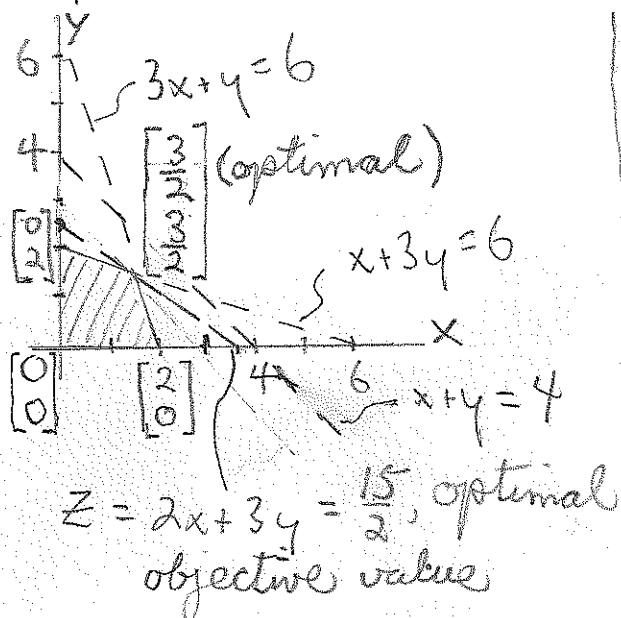 y
6
3x+y=6
4
[3/2 3/2] (optimal)
[0 2]
x+3y=6
x
[0 0]
[2 0]
4
6
x+y=4
Z = 2x+3y = 15/2, optimal
objective value